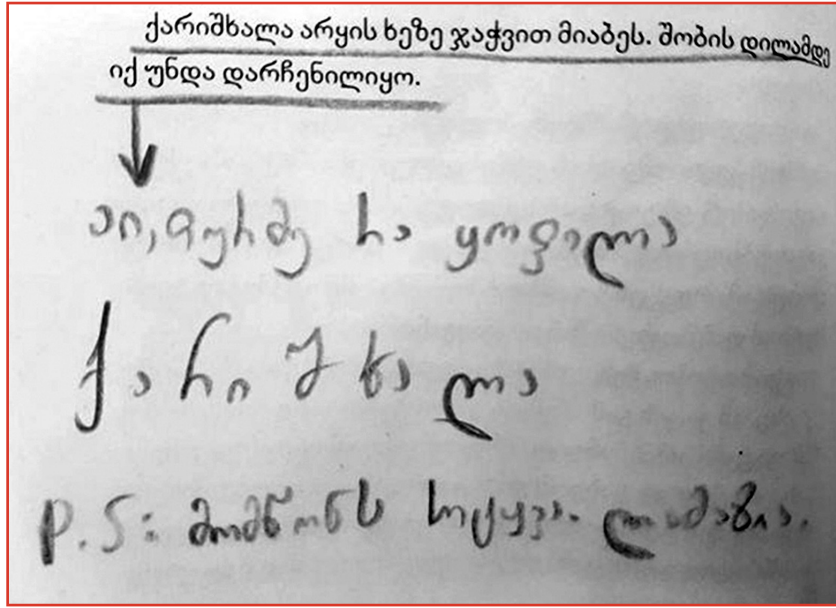 ქარიშხალა არყის ხეზე ჯაჭვით მიაბეს. შობის დილამდე
იქ უნდა დარჩენილიყო.
აი, თურმე რა ყოფილა
ქარიშხალა
P.S: მომწონს სიტყვა. ლამაზია.